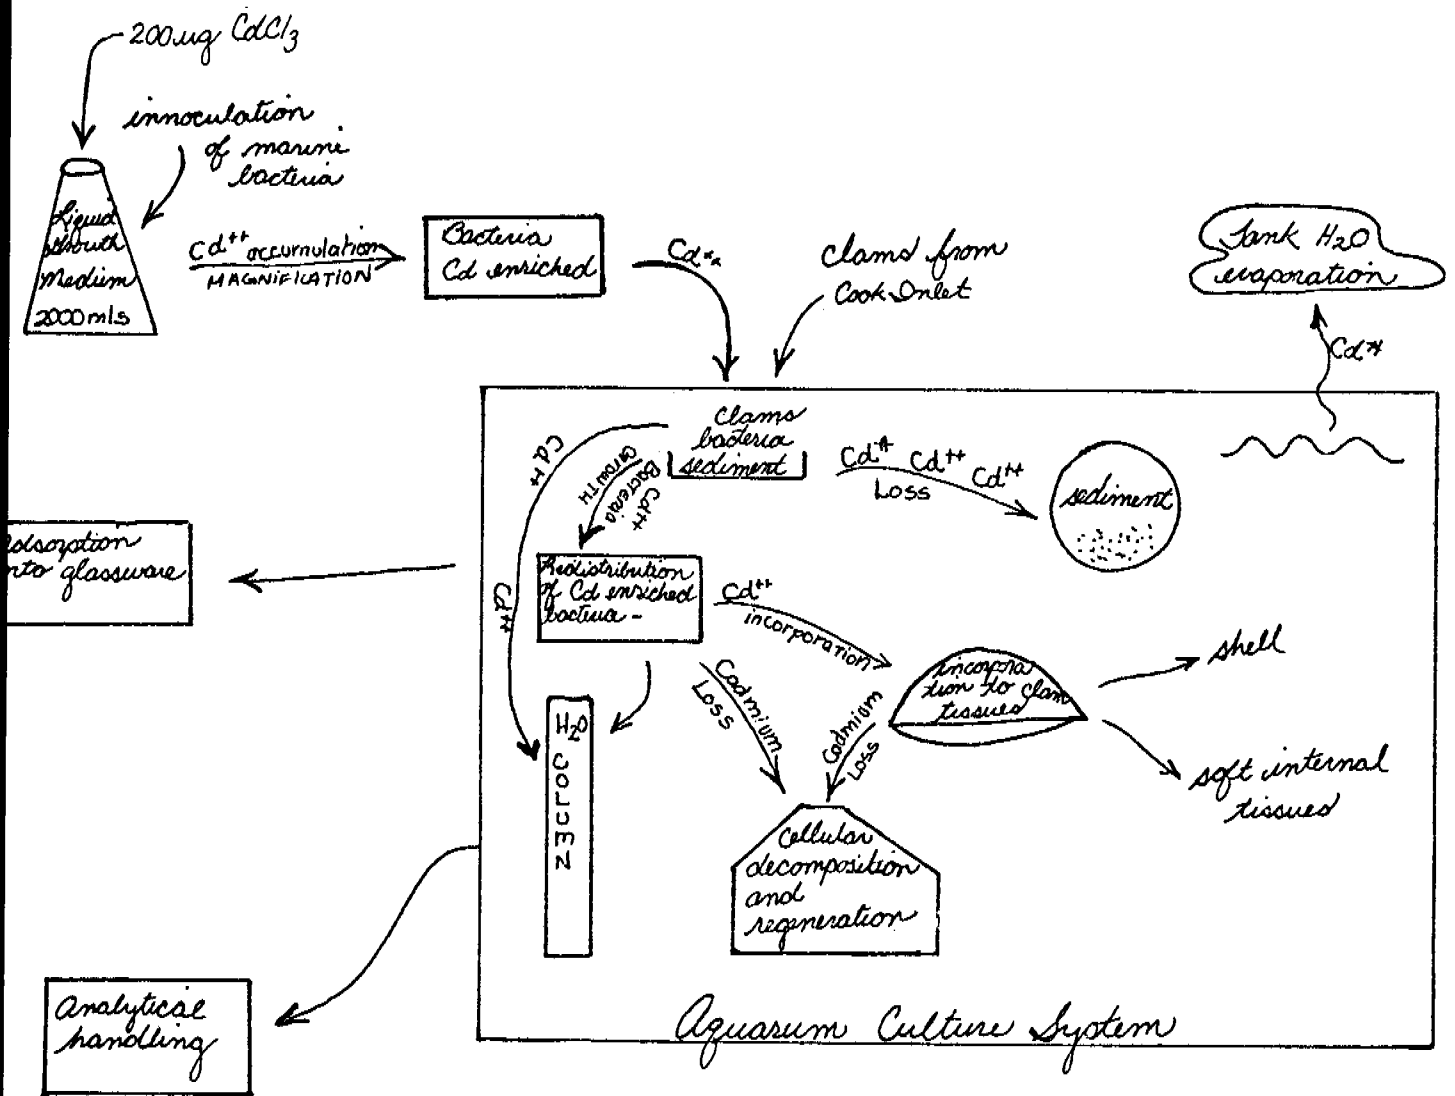 200 ug CdCl3
innoculation
of marine
bacteria
Liquid
Growth
Medium
2000 mls
Cd++ accumulation
MAGNIFICATION
Bacteria
Cd enriched
Cd++
Clams from
Cook Inlet
Tank H2O
evaporation
Cd++
Clams
bacteria
sediment
Cd++ Cd++ Cd++
Loss
sediment
Cd++
GROWTH
Bacteria
Cd++
dsorption
nto glassware
Redistribution
of Cd enriched
bacteria -
Cd++
Cd++
incorporation
incorpora
tion to clam
tissues
shell
soft internal
tissues
Cadmium
Loss
Cadmium
Loss
H2O
COLUMN
Cellular
decomposition
and
regeneration
Analytical
handling
Aquarum Culture System